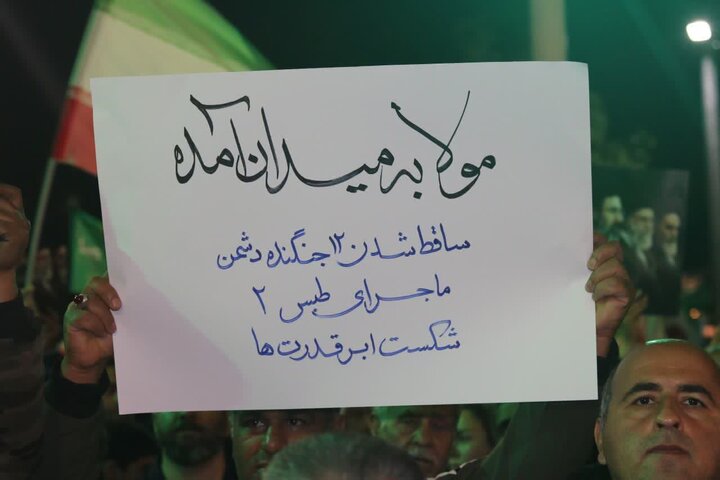 مولا به میدان آمده
ساقط شدن ۱۲ جنگنده دشمن
ماجرای طبس ۲
شکست ابرقدرت ها